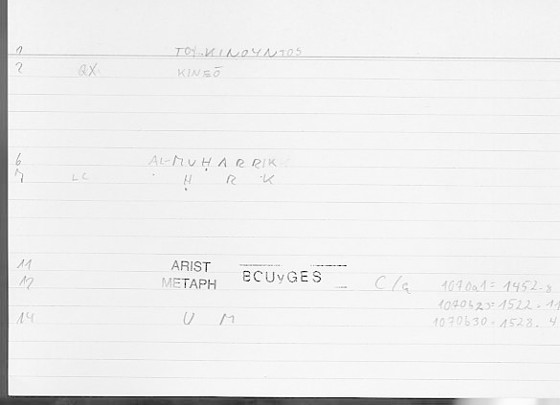 1 TOY KINOYNTOS
2 QX. KINEŌ
6 AL-MUḤARRIK
7 LC Ḥ R K
11 ARIST BCUyGES
12 METAPH C/q 1070a1 = 1452.8
1070b23 = 1522.11
14 U M 1070b30 = 1528.4